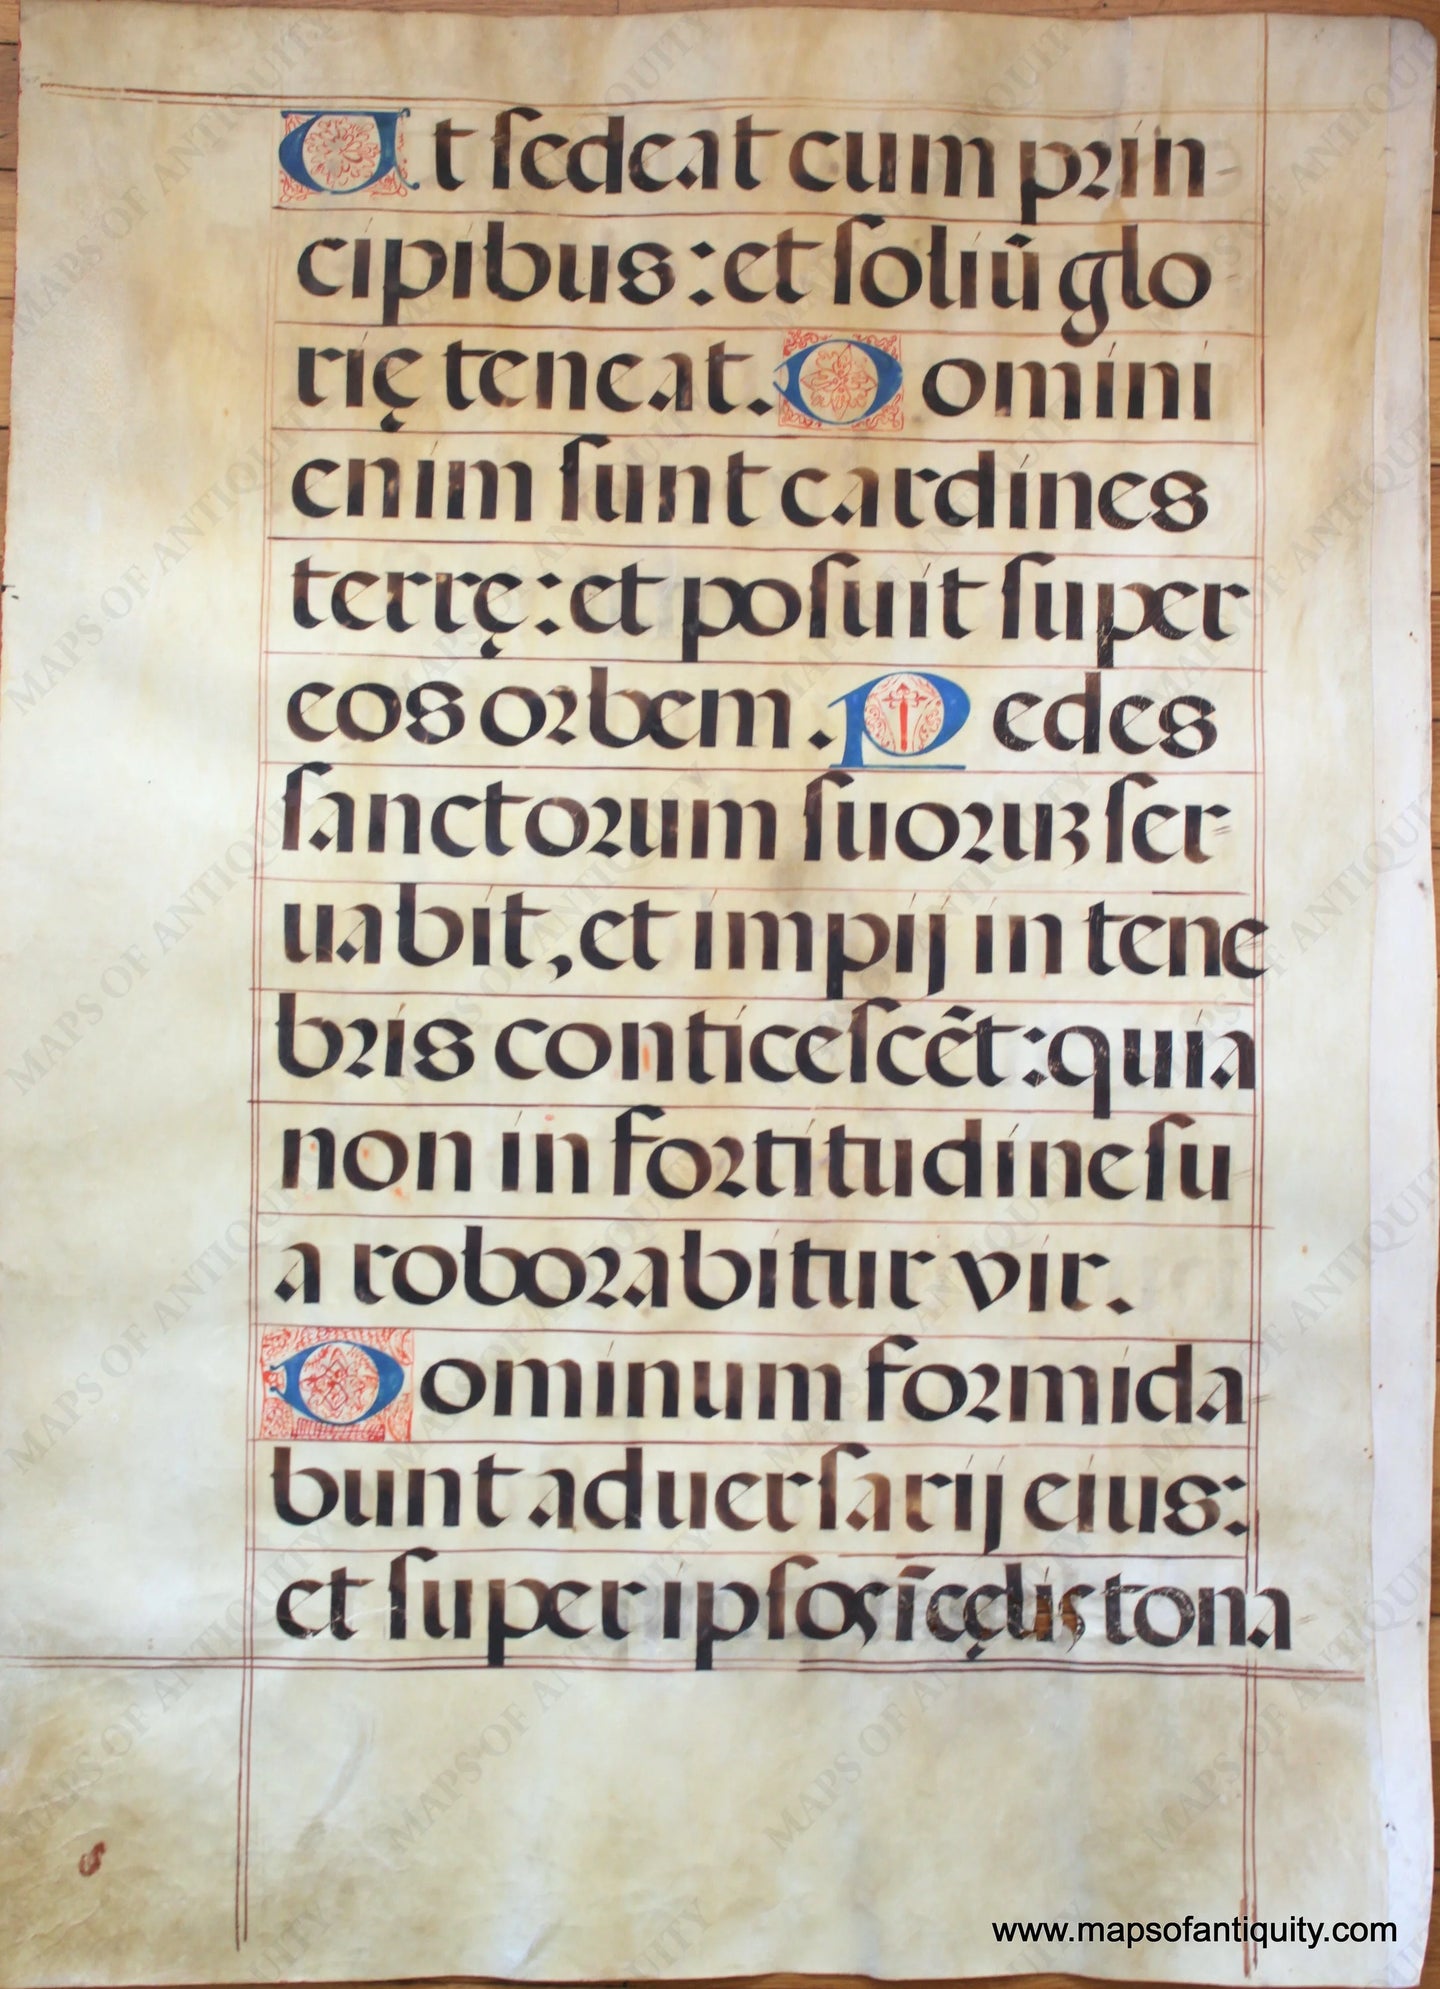 Ut sedeat cum prin-
cipibus: et soliũ glo
rię teneat. Domini
enim sunt cardines
terrę: et posuit super
eos orbem. Pedes
sanctorum suoruꝫ ser-
uabit, et impij in tene
bris conticescẽt: quia
non in fortitudine su
a roborabitur vir.
Dominum formida
bunt aduersarij eius:
et super ipsos ĩ cęlis tona
S
www.mapsofantiquity.com